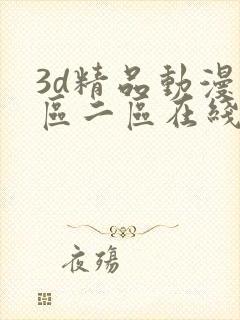 3d精品動漫
區二區在綫
夜殤